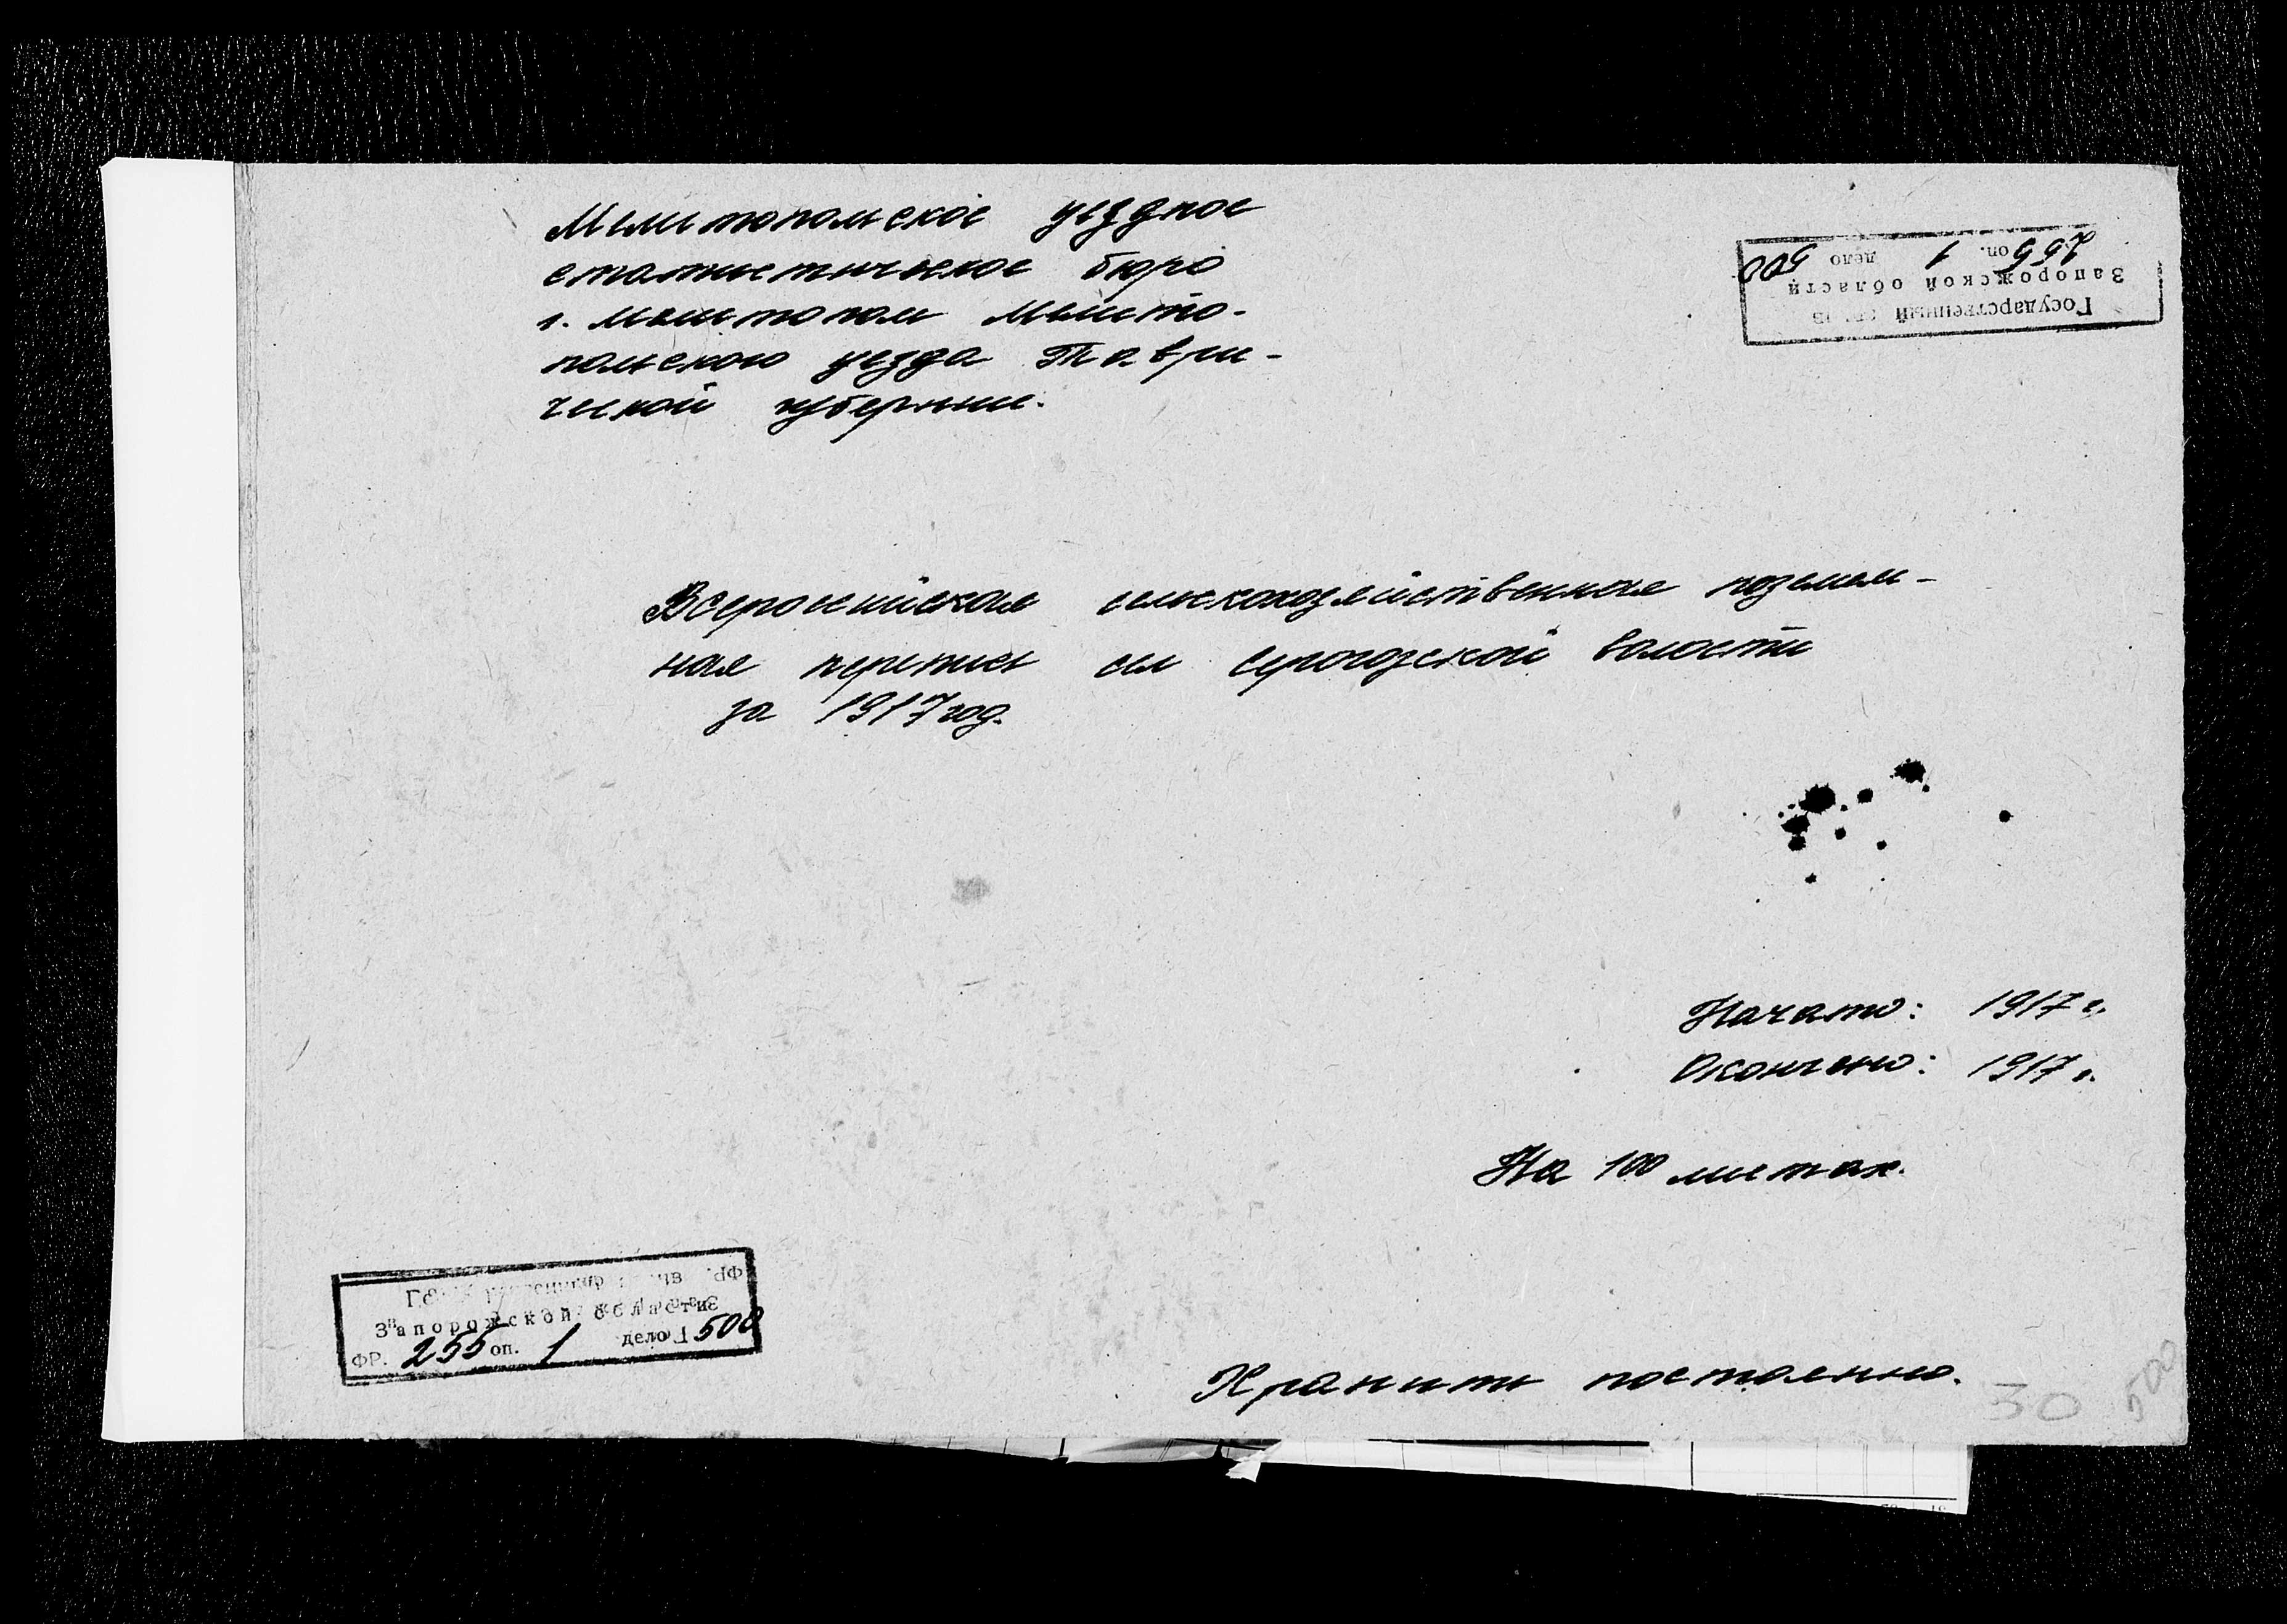 Мелитопольское уездное
статистическое бюро
г. Мелитополь Мелито-
польского уезда Таври-
ческой губернии.
Государственный архив
Запорожской области
255 оп. 1 дело 500
Всероссийская сельскохозяйственная поземель-
ная перепись сел Серогозской волости
за 1917 год.
Начато: 1917 г.
Окончено: 1917 г.
На 100 листах.
Запорожской области
ФР. 255 оп. 1 дело 500
Хранить постоянно.
30 500